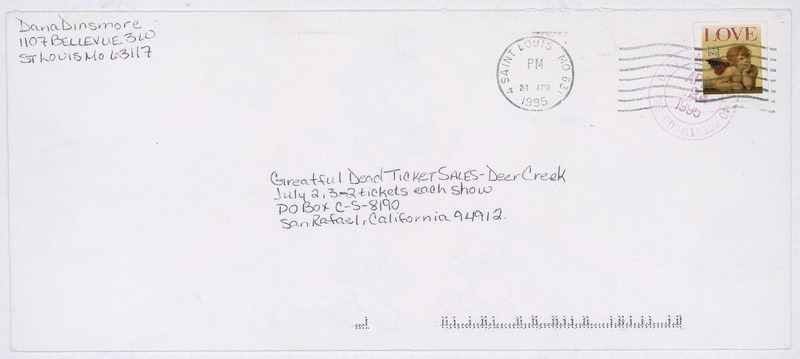 Dana Dinsmore
1107 BELLEVUE 3W
ST LOUIS MO 63117
SAINT LOUIS MO 631
PM
24 APR
1995
LOVE
1995
Greatful Dead TICKET SALES-Deer Creek
July 2,3-2 tickets each show
PO Box C-S-8190
San Rafael, California 94912.